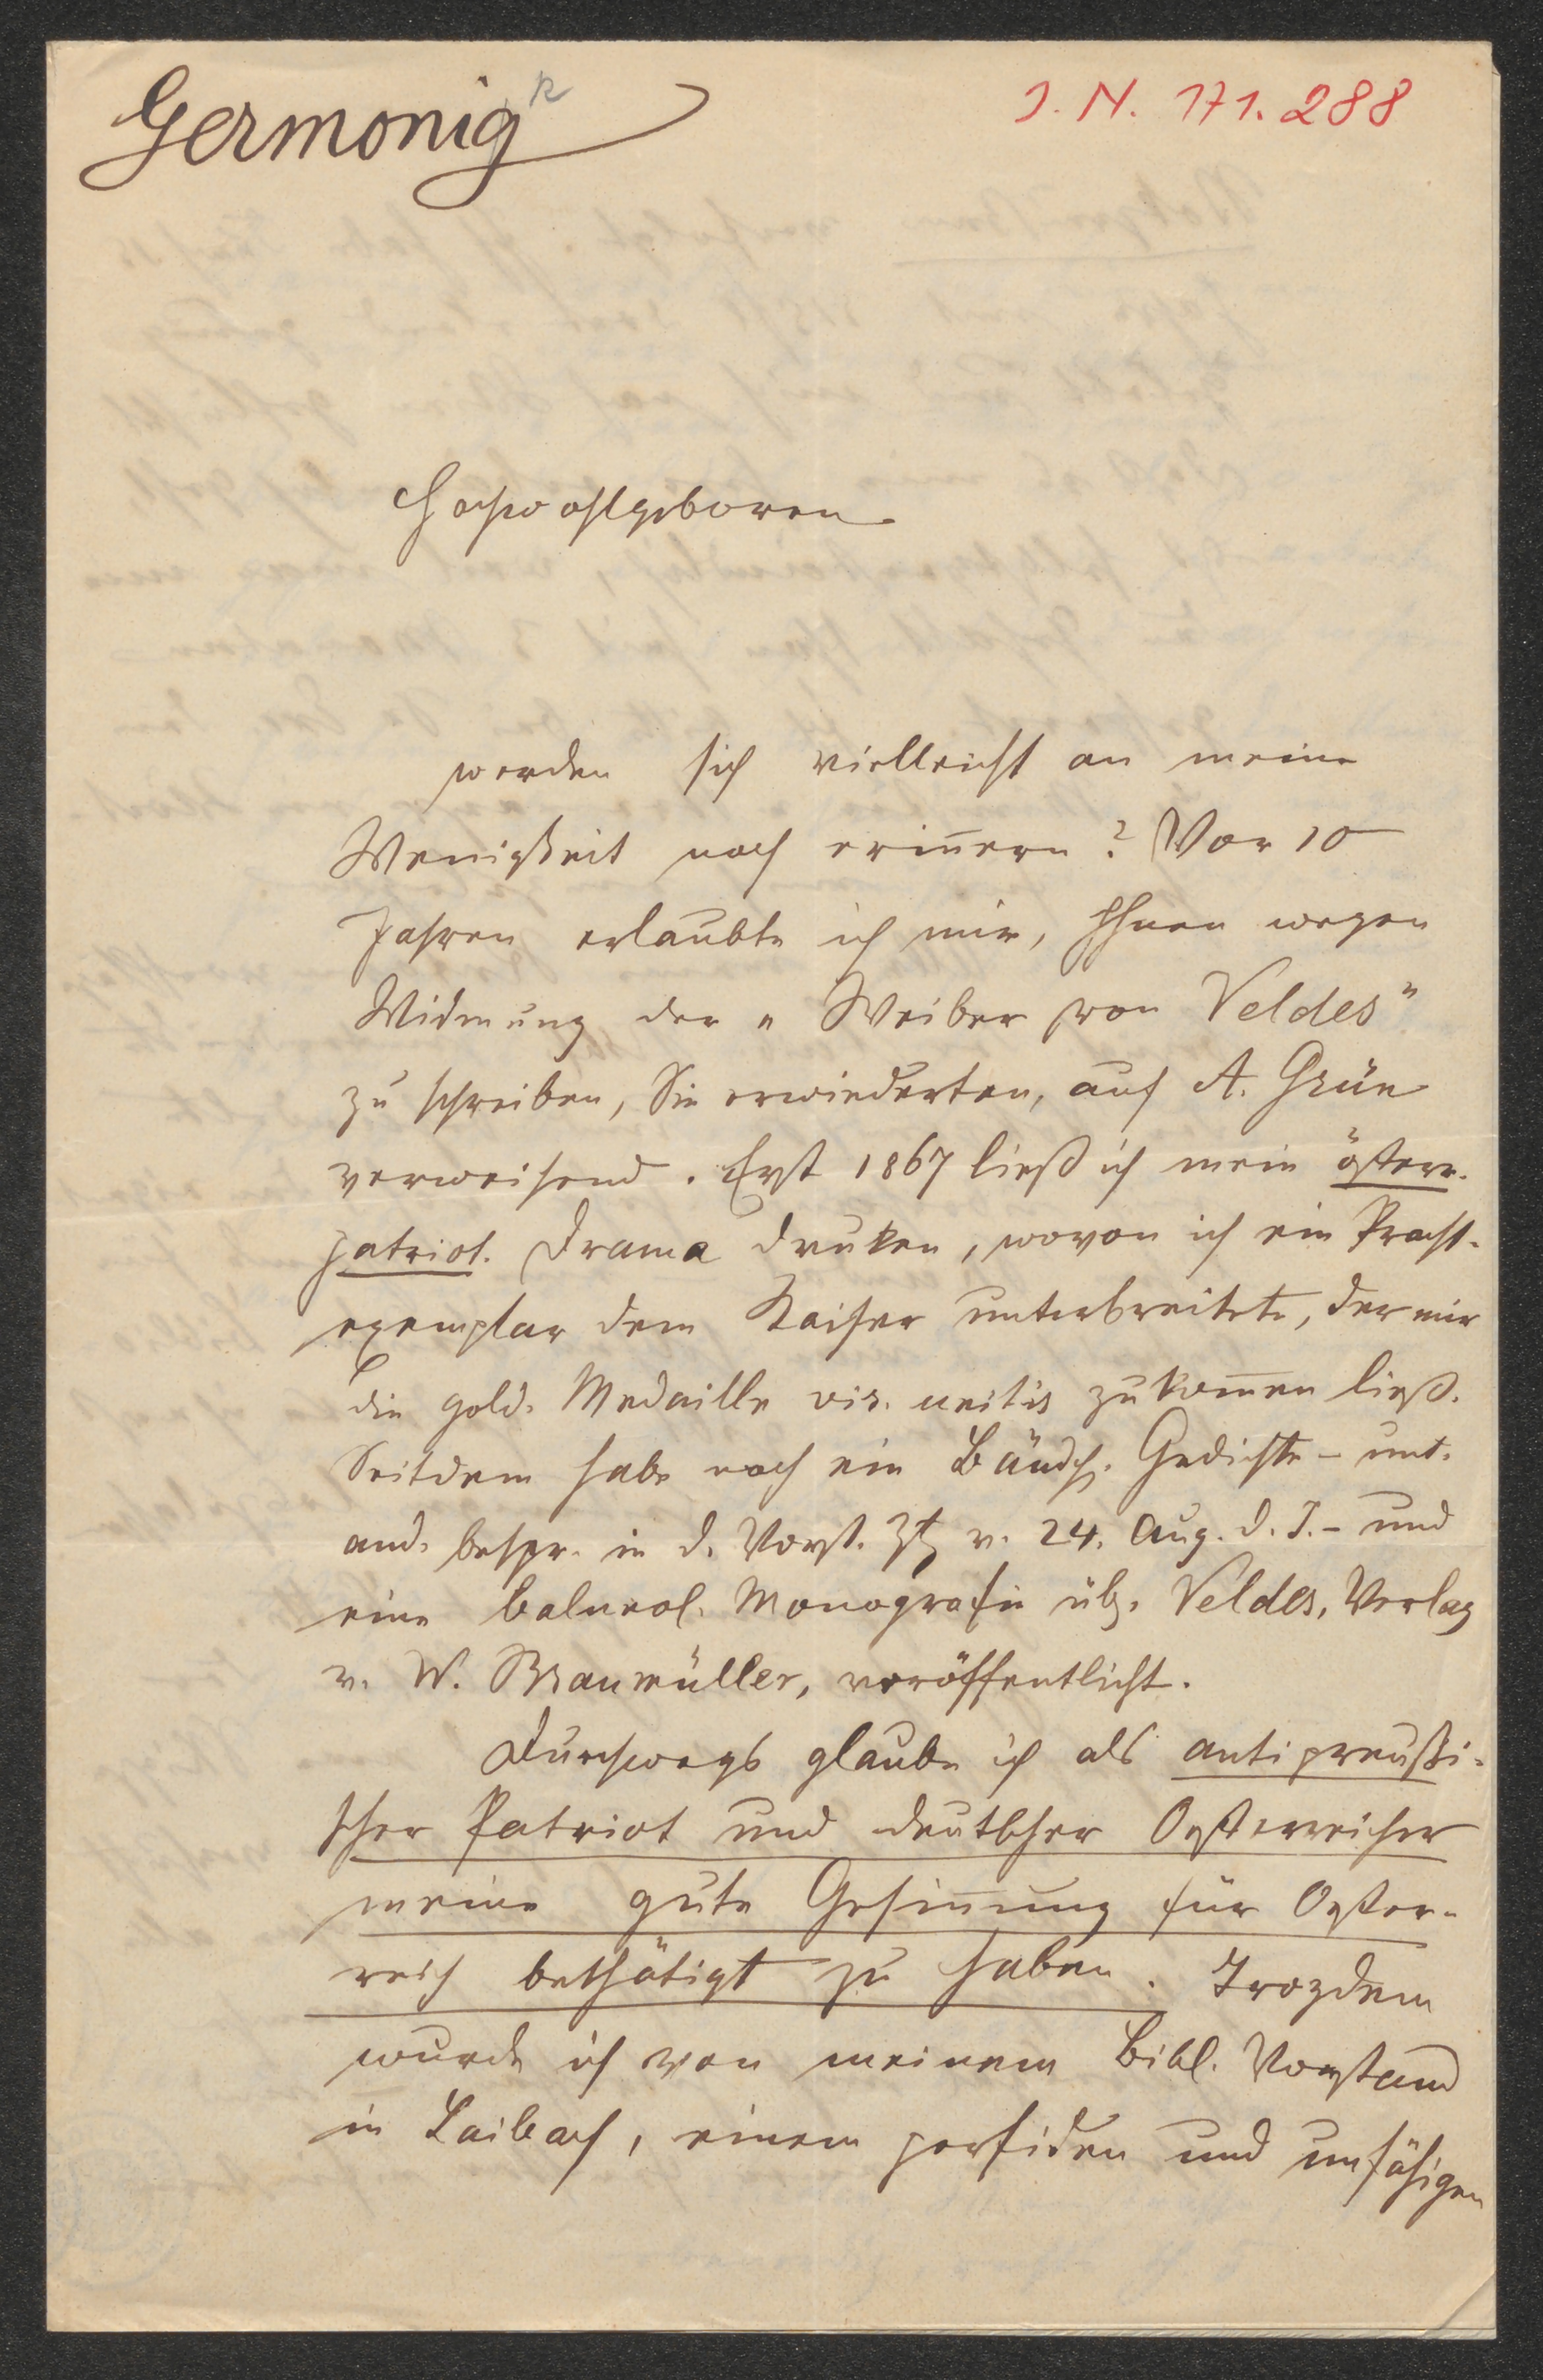 Germonig k
I. N. 171.288
Hochwohlgeboren
werden sich vielleicht an meine
Wenigkeit noch erin̄ern? Vor 10
Jahren erlaubte ich mir, Ihnen wegen
Widmung der „Weiber von Veldes"
zu schreiben, Sie erwiederten, auf A. Grün
verweisend. Erst 1867 ließ ich mein österr.
patriot. Drama druken, wovon ich ein Pracht-
exemplar dem Kaiser unterbreitete, der mir
die gold. Medaille zukom̄en ließ.
Seitdem habe noch ein Bändch. Gedichte – unt.
and. bespr. in d. Vorst. Ztg v. 24. Aug. d. J. – und
eine balneol. Monografie üb. Veldes, Verlag
v. W. Braumüller, veröffentlicht.
Durchwegs glaube ich als antipreußi-
scher Patriot und deutscher Oesterreicher
meine gute Gesin̄ung für Oester-
reich bethätigt zu haben. Trozdem
wurde ich von meinem Bibl. Vorstand
in Laibach, einem perfiden und unfähigen